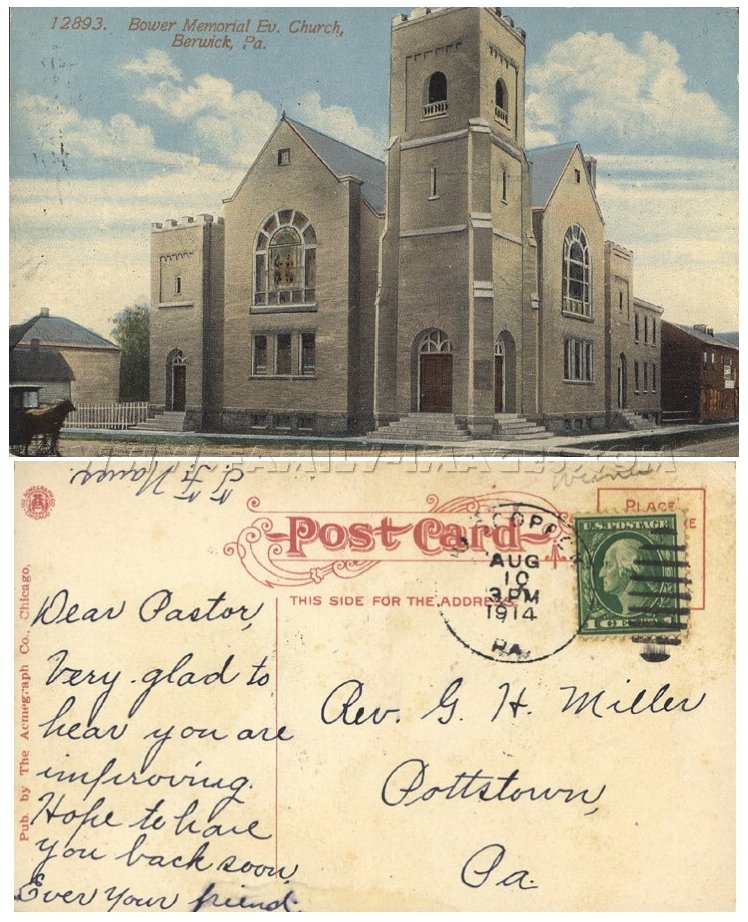 12893. Bower Memorial Ev. Church,
Berwick, Pa.
WWW.FAMILY-IMAGES.COM
Post Card
PLACE
THIS SIDE FOR THE ADDRESS
AUG
10
3 PM
1914
PA.
U.S. POSTAGE
1 CENT
Pub. by The Acmegraph Co., Chicago.
Dear Pastor,
Very glad to
hear you are
improving.
Hope to have
you back soon.
Ever your friend.
Rev. G. H. Miller
Pottstown,
Pa.